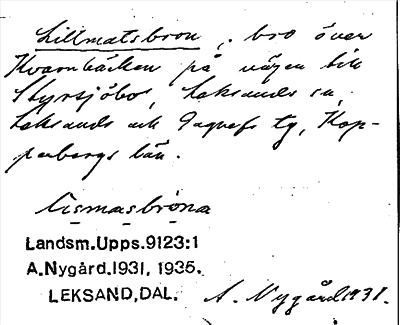 Lillmatsbron, bro över
Kvarnbäcken på vägen till
Styrsjöbo, Leksands sn,
Leksands och Gagnefs tg, Kop-
parbergs län.
Lismasbrona
Landsm.Upps.9123:1
A.Nygård.1931, 1935.
LEKSAND,DAL.
A. Nygård 1931.